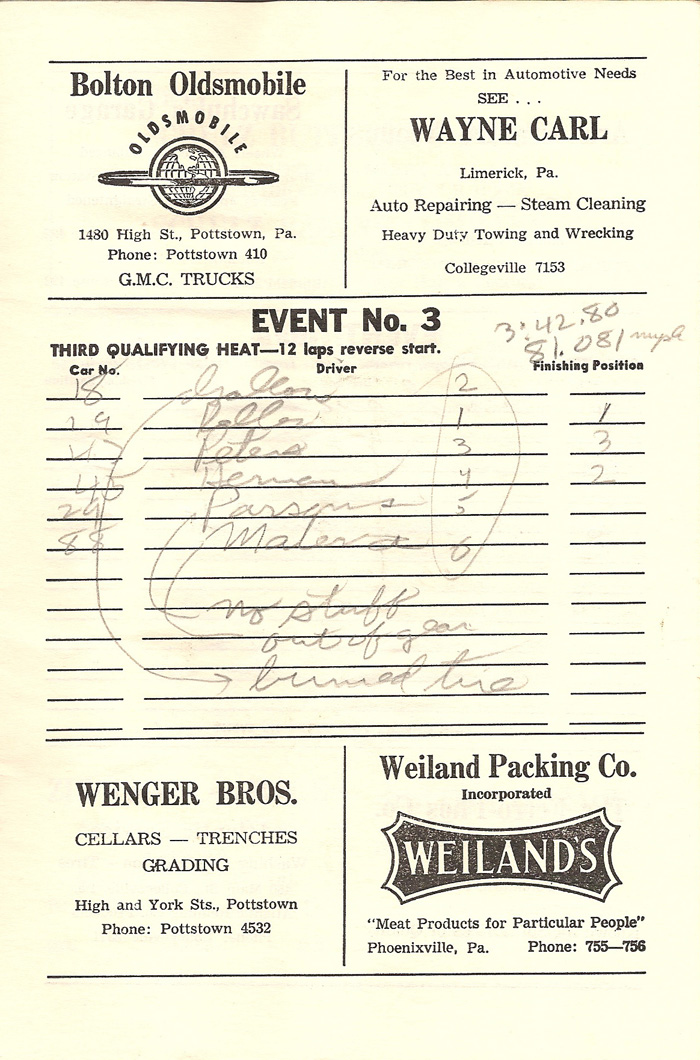 Bolton Oldsmobile
OLDSMOBILE
1480 High St., Pottstown, Pa.
Phone: Pottstown 410
G.M.C. TRUCKS
For the Best in Automotive Needs
SEE . . .
WAYNE CARL
Limerick, Pa.
Auto Repairing — Steam Cleaning
Heavy Duty Towing and Wrecking
Collegeville 7153
EVENT No. 3
3:42.80
81.081 mph
THIRD QUALIFYING HEAT—12 laps reverse start.
Car No. Driver Finishing Position
18 2
29 1 1
Peters 3 3
45 Herman 4 2
29 Parsons 5
88 6
no stuff
out of gear
burned tire
WENGER BROS.
CELLARS — TRENCHES
GRADING
High and York Sts., Pottstown
Phone: Pottstown 4532
Weiland Packing Co.
Incorporated
WEILAND'S
"Meat Products for Particular People"
Phoenixville, Pa. Phone: 755—756